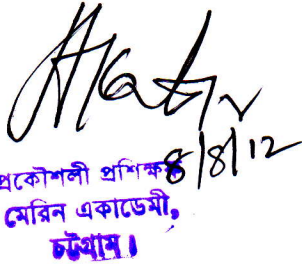 8/8/12
প্রকৌশলী প্রশিক্ষক
মেরিন একাডেমী,
চট্টগ্রাম।